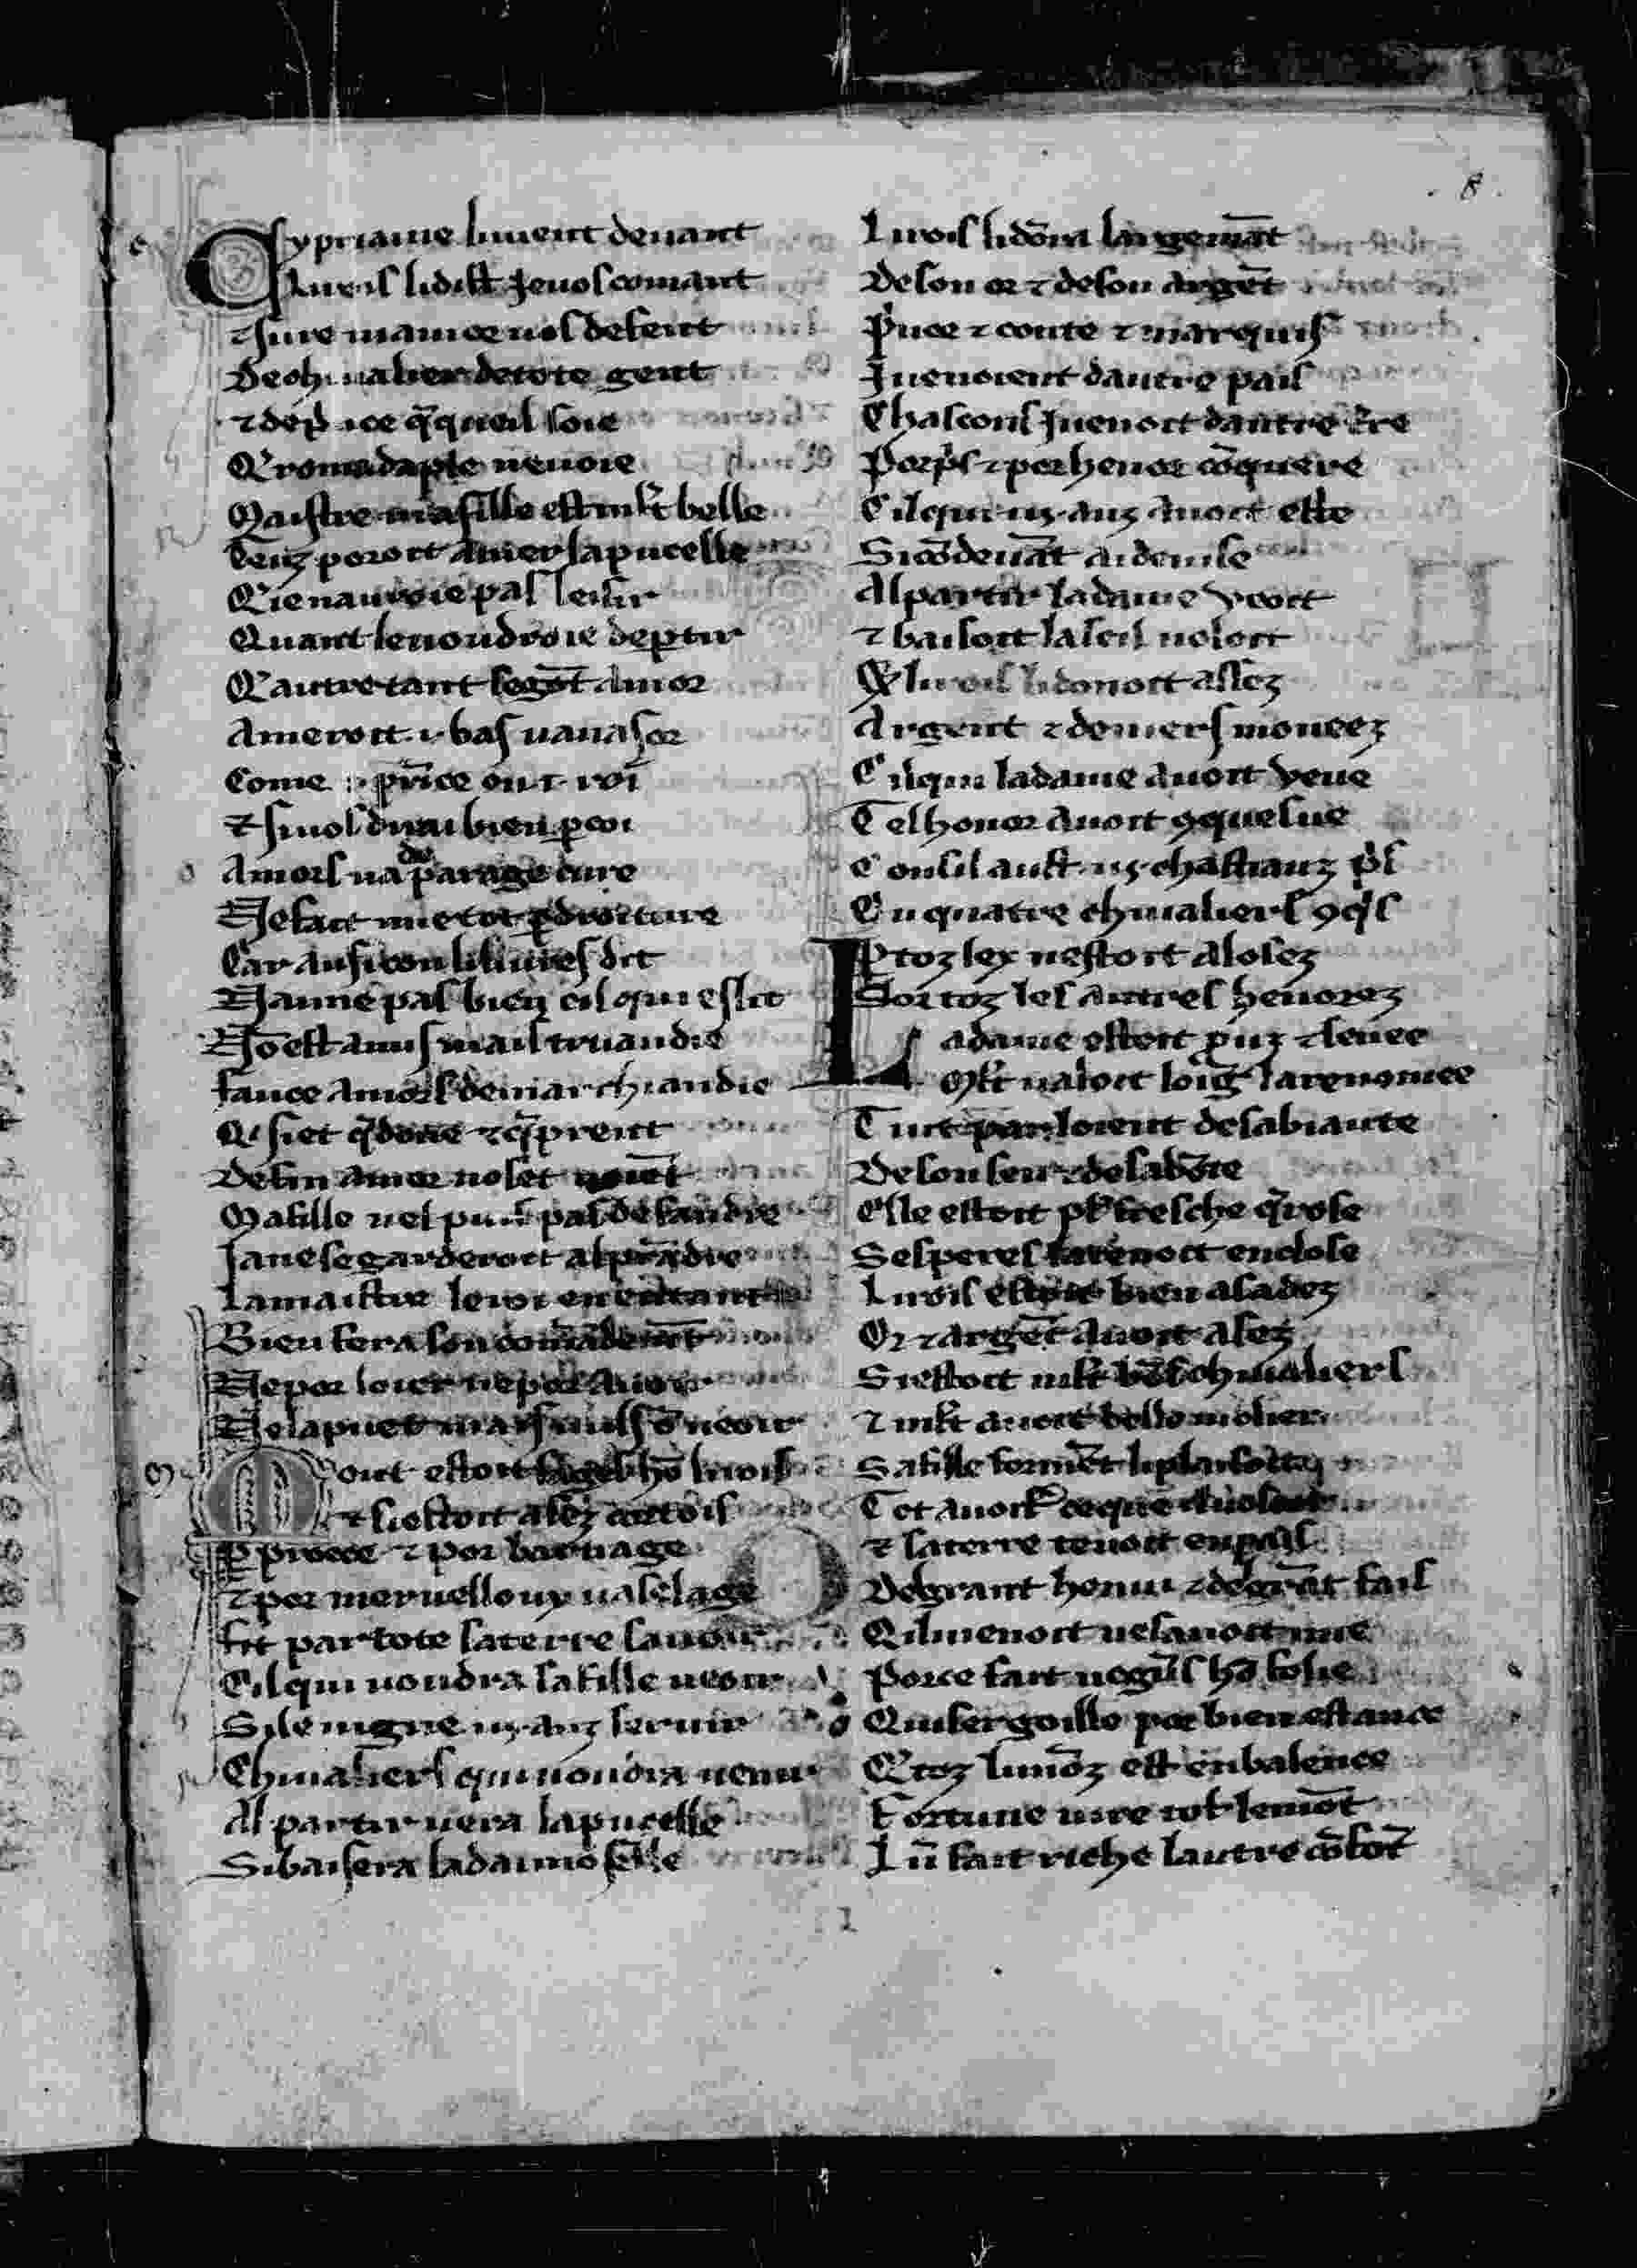 .8.
Cypriane li uient deuant
Li rois li dist Je uos comant
⁊ sure mamor uos defent
De cheualier de tote gent
⁊ de p̄nce q̄ queil soie
Maistre ma fille est ml't belle
Tenz poroit amer la pucelle
Q'ie nauroie pas leisir
Quant le uoudroie deptir
Q'autretant se gōt amor
Ameroit .i. bas uauasor
Come .i. prīce ou .i. roi
⁊ si uos dirai bien p̱ coi
Amors na de parage cure
Ne fait mie tot p̱ droiture
Car ausi con li liures dit
Naime pas bien cil qui eslit
Nō est amis mais truandie
fauce amors de marchiandie
Q' siet q̄ done ⁊ q̄ prent
De fin amor no set noiēt
Ma fille nel puet pas desfandre
Ja ne se garderoit al prādre
La maistre le roi en
Bien fera son comādemēt
Ne por loier ne por auoir
Ne la puet mais nuls ō ueoir
Mout estoit sages hō li rois
⁊ si estoit asez cortois
P̱ proece ⁊ por barnage
⁊ por meruelloux uaselage
fit par tote sa terre sauoir
Cil qui uoudra sa fille ueoir
Si le uigne .iij. anz seruir
Cheualiers qui uoudra uenir
Al partir uera la pucelle
Si baisera la damoiselle
Li rois li dōra largemāt
De son or ⁊ de son argēt
P'nce ⁊ conte ⁊ marquis
J uenoient dautre païs
Chascons J uenoit dautre t̄re
Por p's ⁊ por henor cōquere
Cil qui .iij. anz auoit esté
Si cō deuāt ai deuise
Al partir la dame veoit
⁊ baisoit la seil uoloit
⁊ li rois li donoit assez
Argent ⁊ deniers moneez
Cil qui la dame auoit veue
Tel honor auoit ꝯquesue
Con sil aust .iij. chastiauz p's
Ou quatre cheualiers ꝯq's
P̱ toz lex nestoit alosez
Sor toz les autres henorez
La dame estoit pruz ⁊ senee
Ml't ualoit loīg la renomee
Tuit parloient de sa biaute
De son sen ⁊ de sa bōte
Elle estoit pl' fresche q̄ rose
Ses peres la tenoit enclose
Li rois estoit bien asadez
Or ⁊ argēt auoit asez
Si estoit ml't bōs cheualiers
⁊ ml't auoit belle molier
Sa fille formēt li plaisoit
Tot auoit ce que il uoloit
⁊ sa terre tenoit en pais
De grant henui ⁊ de grāt fais
Q'il menoit ne sauoit mie
Por ce fait nog's hō folie
Qui sergoille por bien estance
Q' toz li mōz est en balence
Fortune uire tot le mōt
Lū fait riche lautre cōfōt